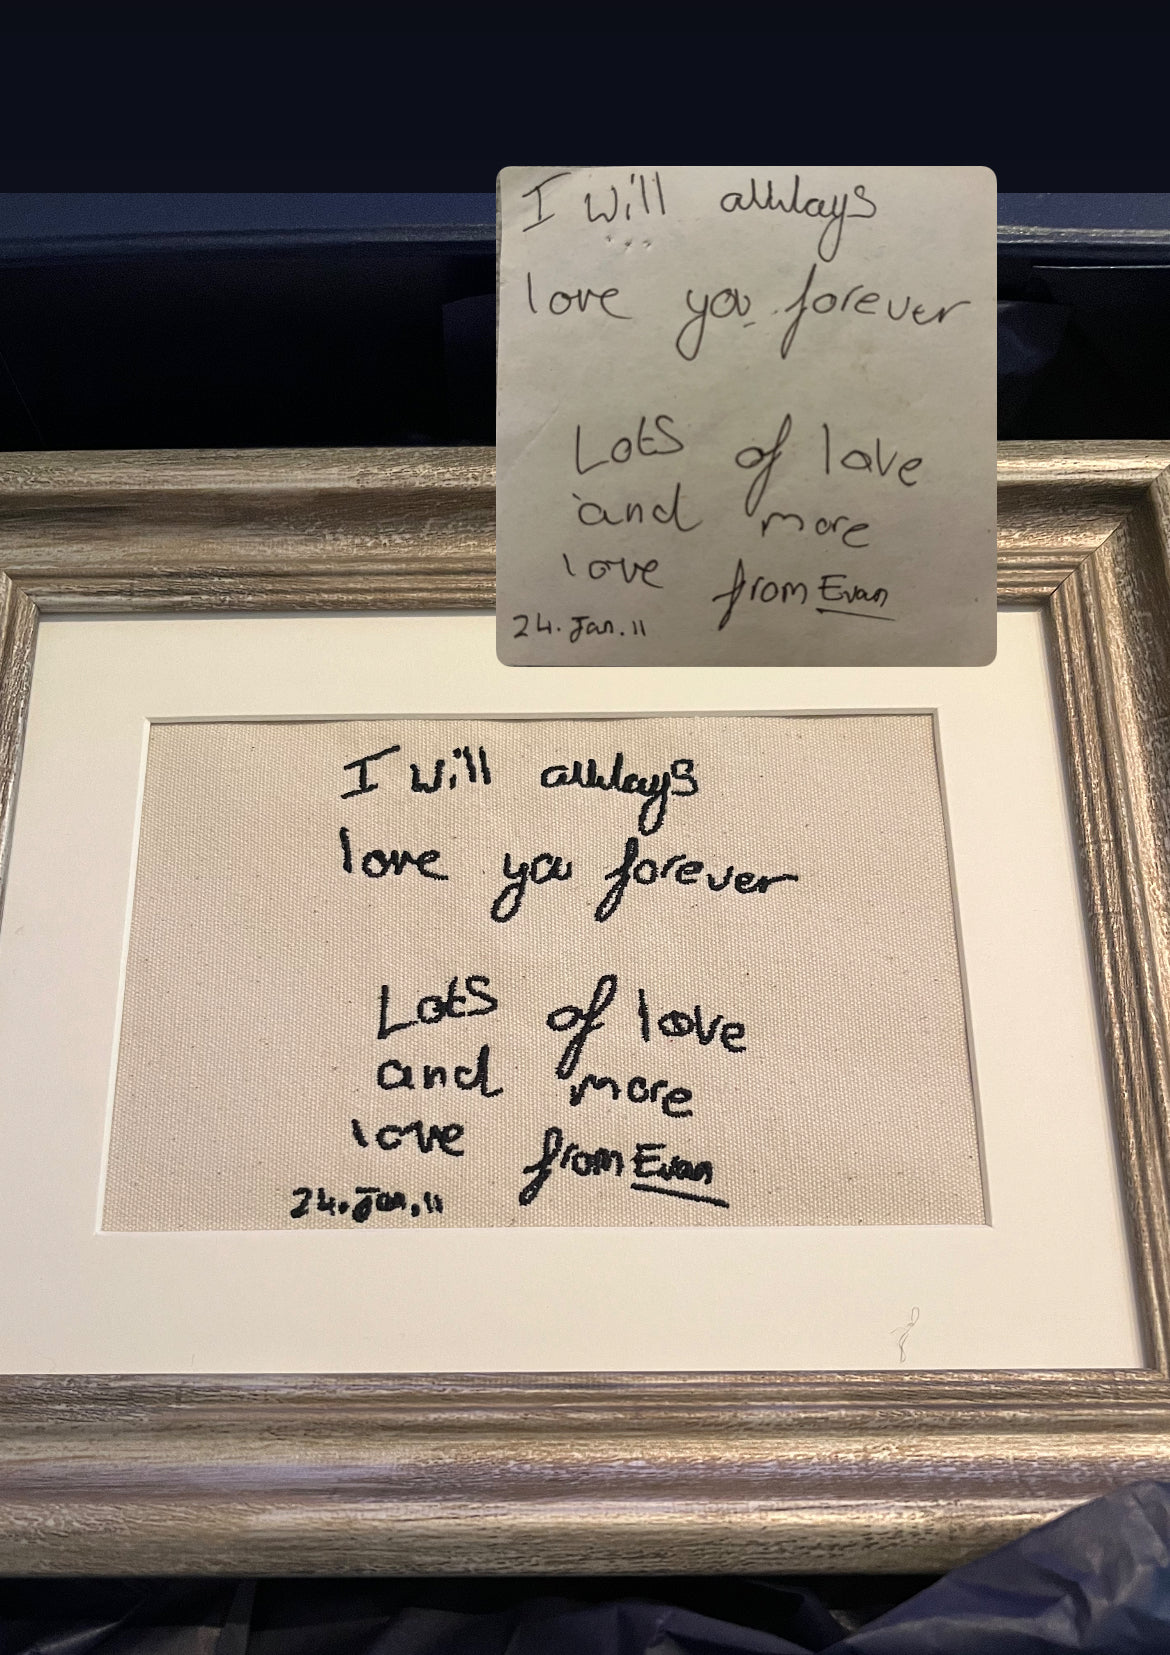 I will allways
love you forever
Lots of love
and more
love from Evan
24. Jan. 11
I will allways
love you forever
Lots of love
and more
love from Evan
24. Jan. 11